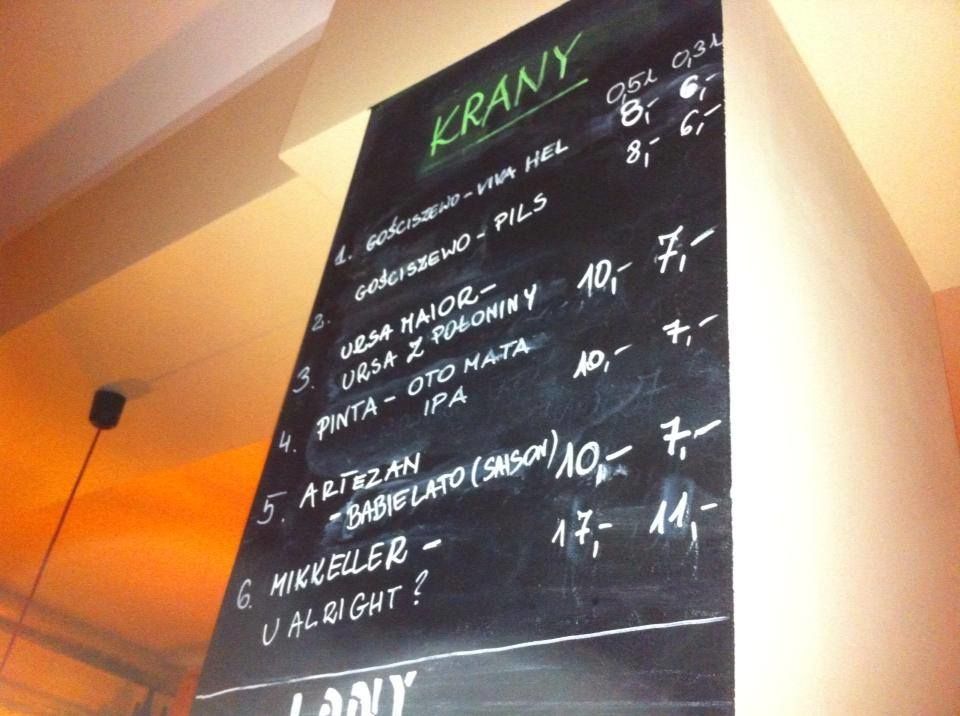 KRANY
0,5L 0,3L
1. GOŚCISZEWO - VIVA HEL 8,- 6,-
2. GOŚCISZEWO - PILS 8,- 6,-
3. URSA MAIOR -
URSA Z POŁONINY 10,- 7,-
4. PINTA - OTO MATA
IPA 10,- 7,-
5. ARTEZAN
- BABIELATO (SAISON) 10,- 7,-
6. MIKKELLER -
U ALRIGHT? 17,- 11,-